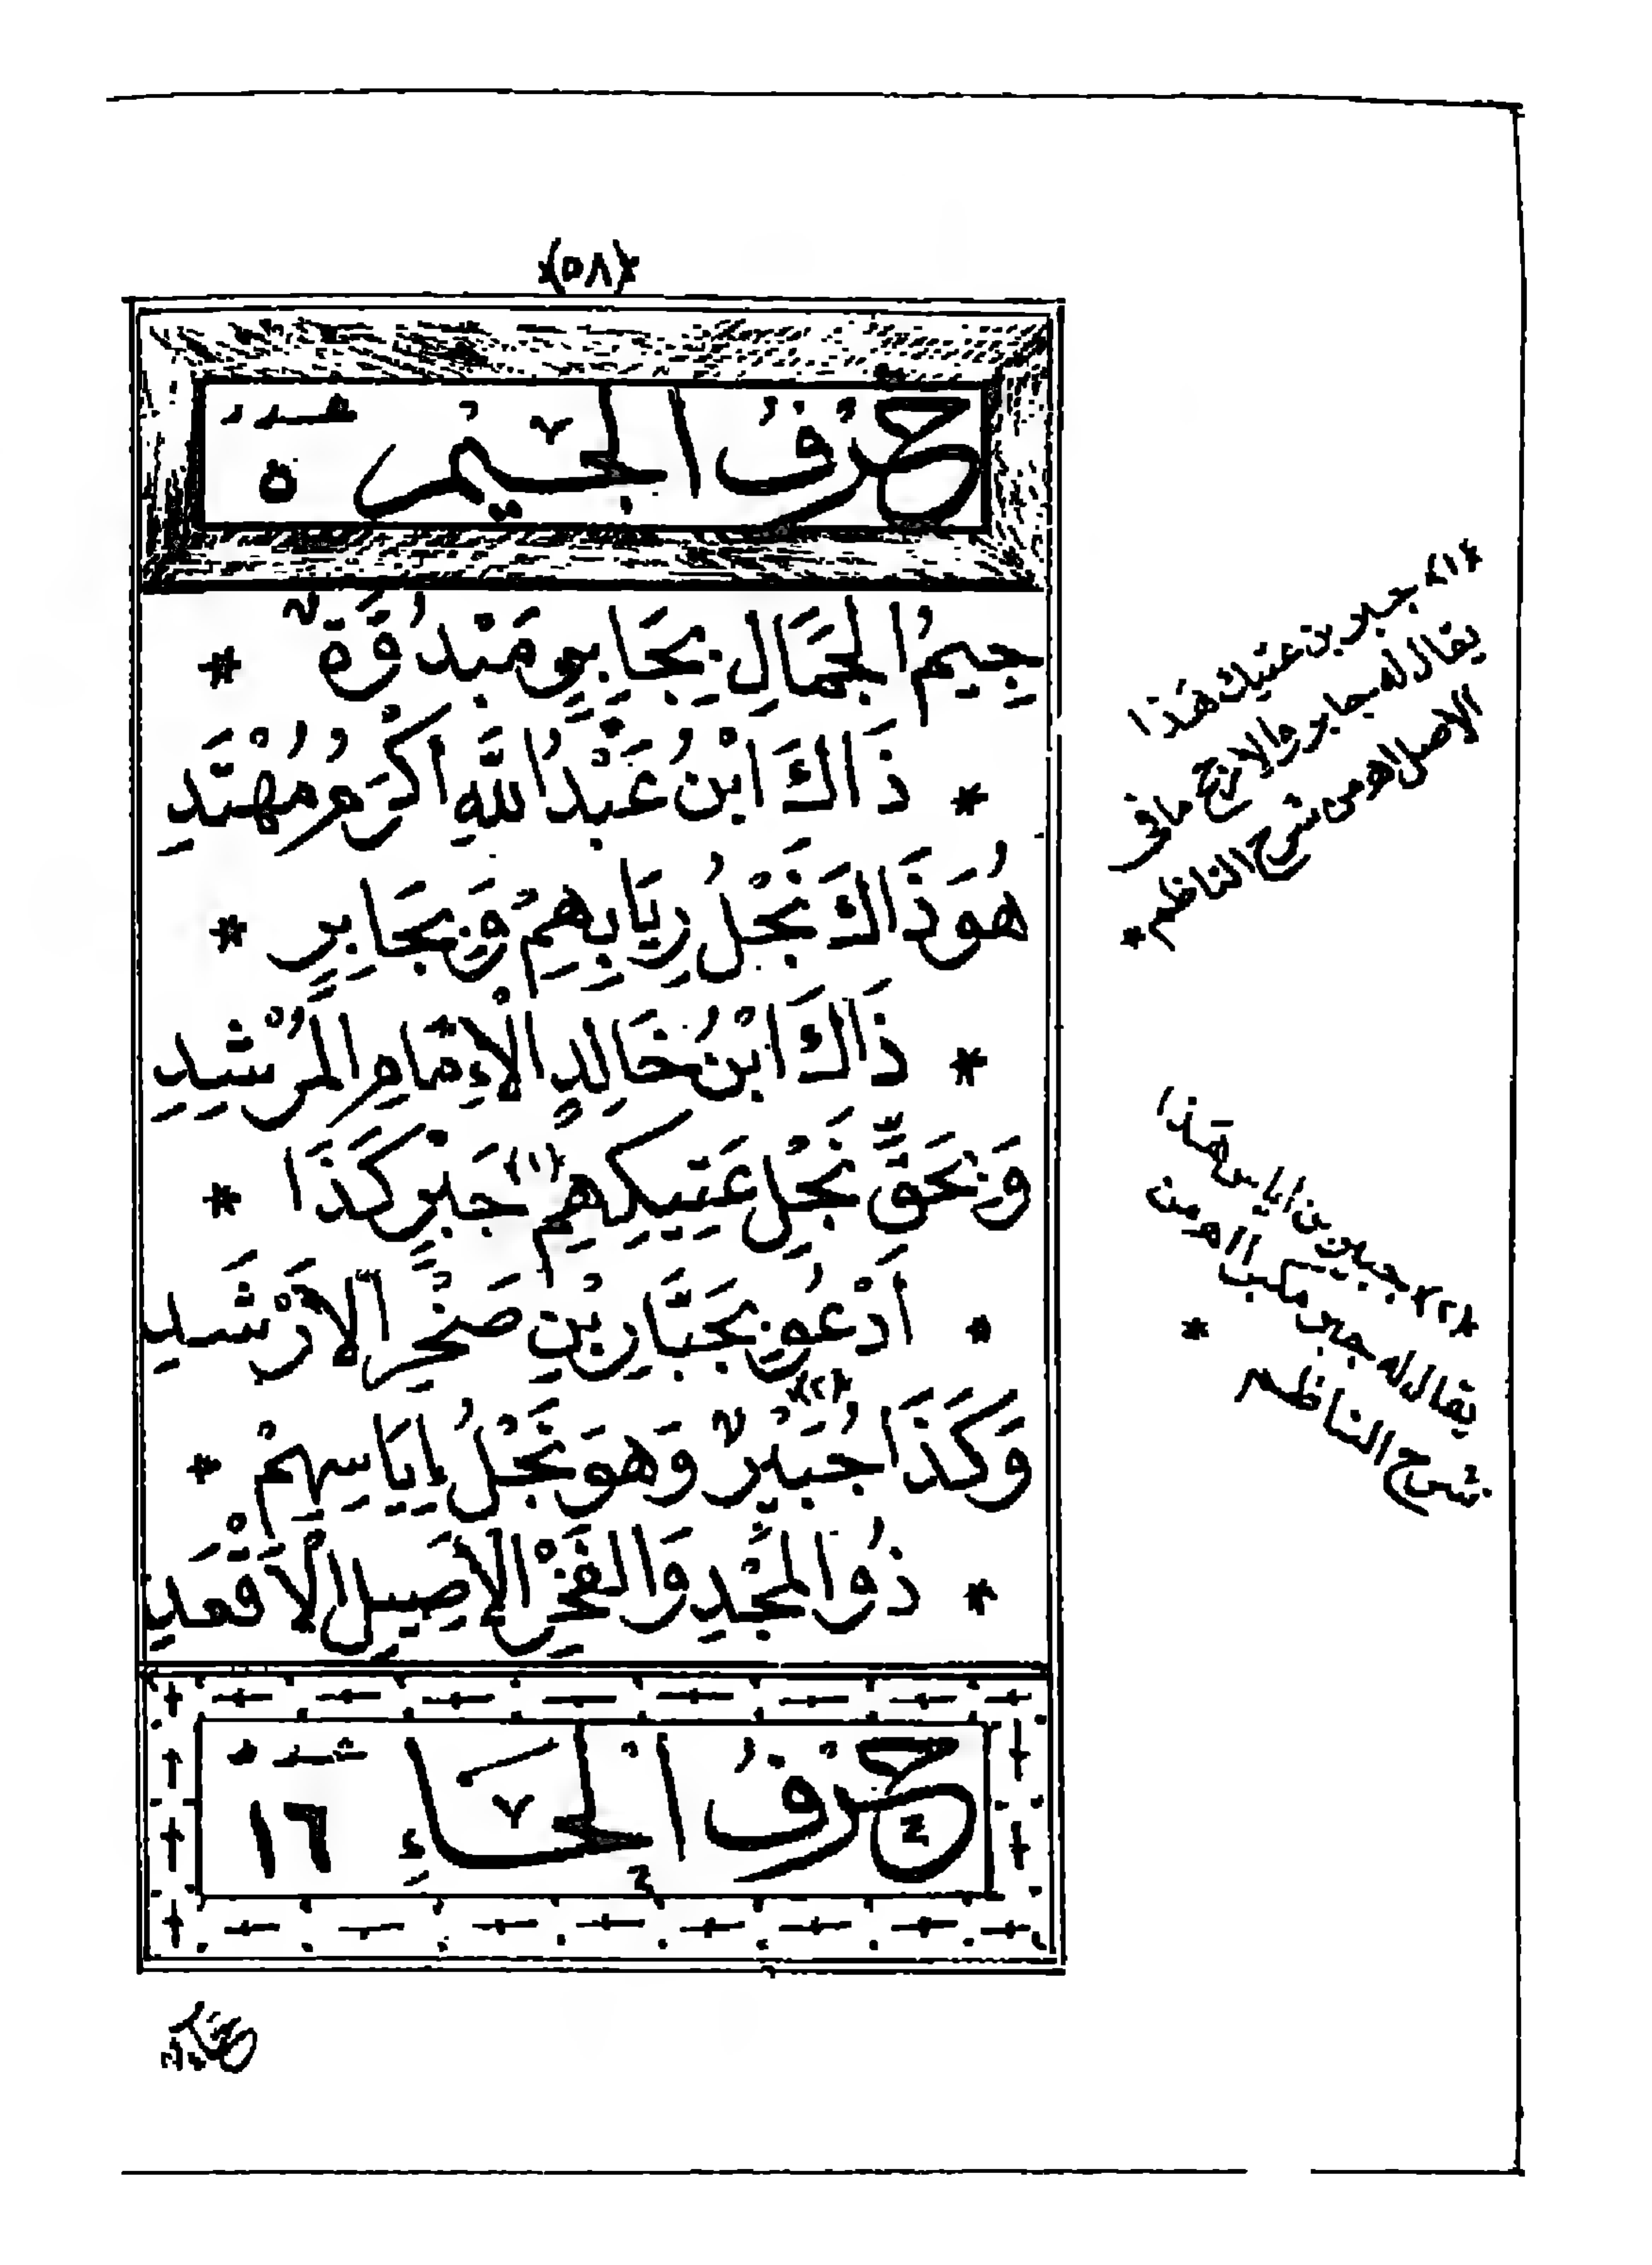 (٥٨)
حَرْفُ الْجِيْمِ عدد ٥
جِيمُ الْجَمَالِ بِجَابِرٍ مَنْدُوقَةٌ *
* ذَاكَ ابْنُ عَبْدُ اللَّهِ اكْرَمُ مُهْتَدِ
هُوَ ذَاكَ نَجْلُ رِيَابِهِمْ وَبِجَابِرٍ *
* ذَاكَ ابْنُ خَالِدٍ الْإِمَامِ الْمُرْشِدِ
وَبِحَقِّ نَجْلِ عَتِيكِهِمْ (١) جَبْرٍ كَذَا *
* اَدْعُو بِجَبَّارِ بْنِ صَخْرِ الْاَرْشَدِ
وَكَذَا جُبَيْرٌ (٢) وَهوَ نَجْلُ إِيَاسِهِمْ *
* ذُو الْمَجْدِ وَالْفَخْرِ الْاَصِيلِ الْاَقْعَدِ
حَرْفُ الْحَاءِ عدد ١٦
(١) جبر بن عتيك هَذا
يقال له جابر والارجح ما في
الاصل اهـ من شرح الناظم *
(٢) جبير بن اياس هَذا
يقال له جبر مكبرا اهـ من
شرح الناظم *